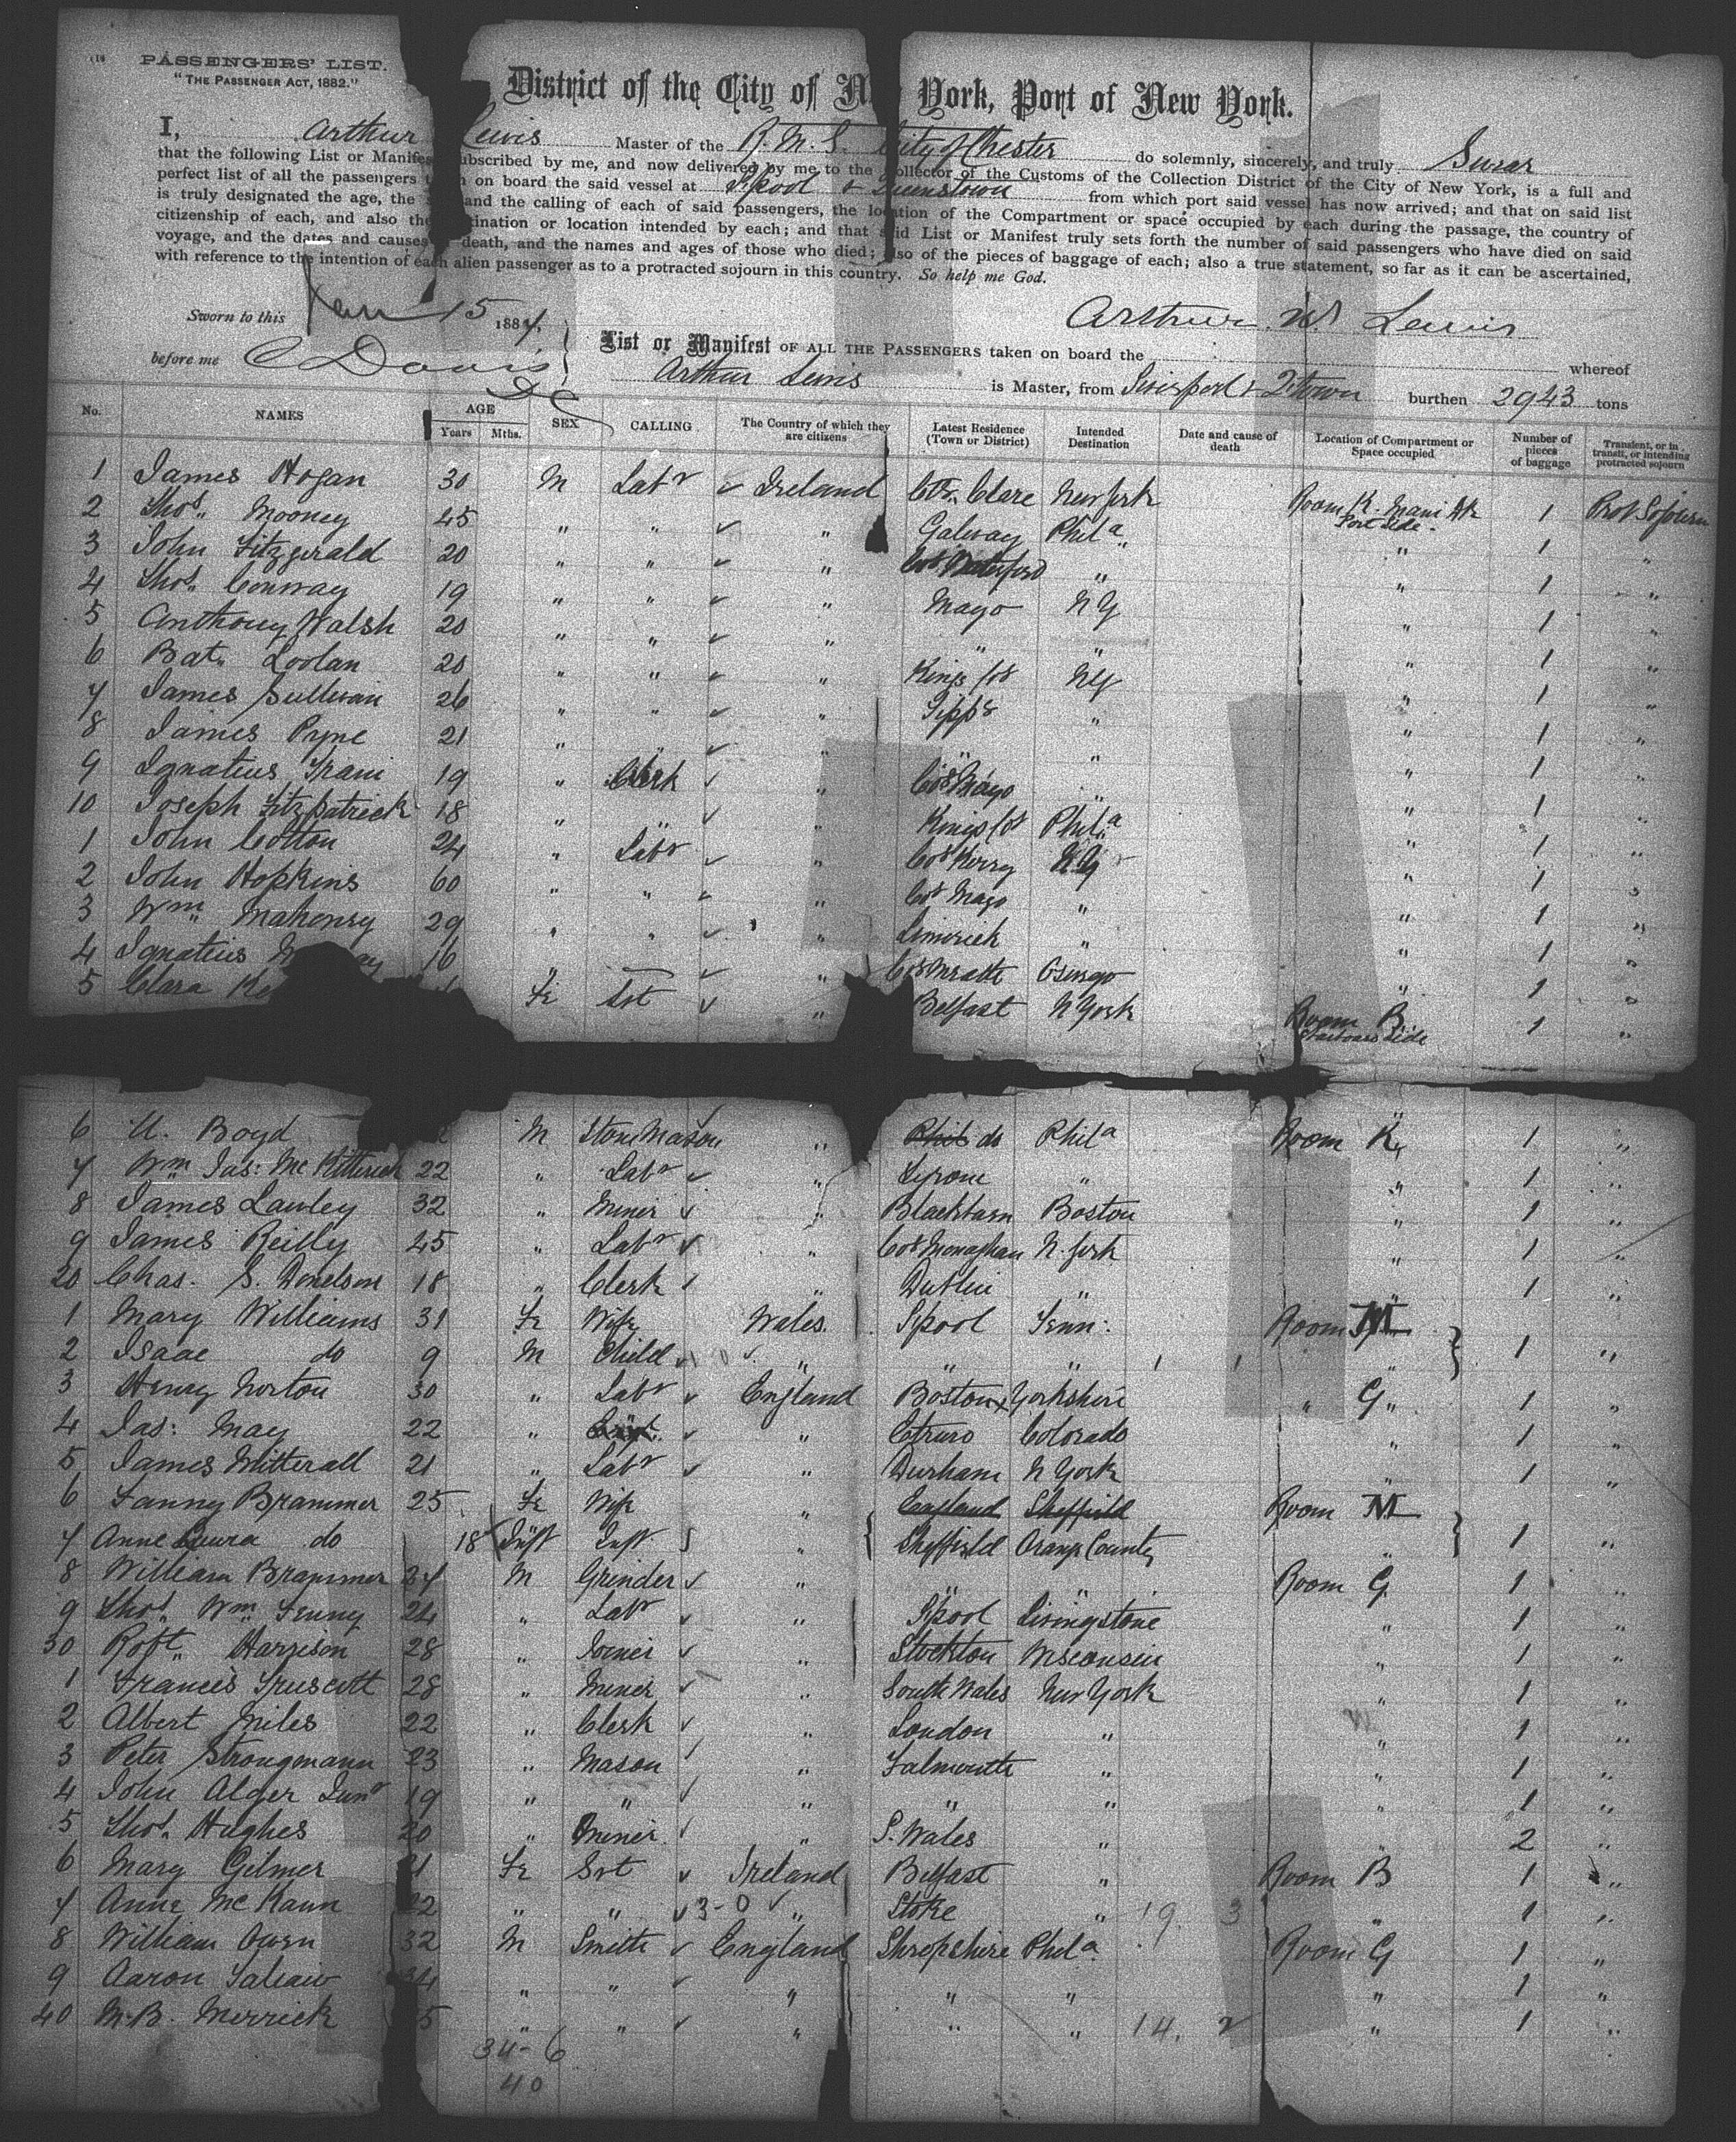 PASSENGERS' LIST.
"THE PASSENGER ACT, 1882."
District of the City of New York, Port of New York.
I, Arthur Lewis Master of the R.M.S. City of Chester do solemnly, sincerely, and truly Swear
that the following List or Manifest subscribed by me, and now delivered by me to the Collector of the Customs of the Collection District of the City of New York, is a full and
perfect list of all the passengers on board the said vessel at L'pool & Queenstown from which port said vessel has now arrived; and that on said list
is truly designated the age, the and the calling of each of said passengers, the location of the Compartment or space occupied by each during the passage, the country of
citizenship of each, and also the destination or location intended by each; and that said List or Manifest truly sets forth the number of said passengers who have died on said
voyage, and the dates and causes death, and the names and ages of those who died; also of the pieces of baggage of each; also a true statement, so far as it can be ascertained,
with reference to the intention of each alien passenger as to a protracted sojourn in this country. So help me God.
Arthur W Lewis
Sworn to this 15 1884.
before me C Davis
DC
List or Manifest OF ALL THE PASSENGERS taken on board the whereof
Arthur Lewis is Master, from Liverpool & Q'town burthen 2943 tons
No. NAMES AGE Years Mths. SEX CALLING The Country of which they are citizens Latest Residence (Town or District) Intended Destination Date and cause of death Location of Compartment or Space occupied Number of pieces of baggage Transient, or in transit, or intending protracted sojourn
1 James Hogan 30 M Labr Ireland Co. Clare New York Room K. Main Dk Port Side. 1 Prot Sojourn
2 Thos. Mooney 45 " " " Galway Phila " 1 "
3 John Fitzgerald 20 " " " Co. Waterford " " 1 "
4 Thos. Conway 19 " " " Mayo NY " 1 "
5 Anthony Walsh 20 " " " " " " 1 "
6 Bat. 20 " " " Kings Co NY " 1 "
7 James Sullivan 26 " " " Tippy " " 1 "
8 James Pyne 21 " " " " " " 1 "
9 Ignatius 19 " Clerk " Co. Mayo " " 1 "
10 Joseph Fitzpatrick 18 " " " Kings Co Phila " 1 "
1 John Cotton 24 " Labr " Co. Kerry N.Y " 1 "
2 John Hopkins 60 " " " Co. Mayo " " 1 "
3 Wm. Mahoney 29 " " " Limerick " " 1 "
4 Ignatius 16 " " Co. Meath Oswego " 1 "
5 Clara Fe Svt " Belfast N York Room B. Starboard Side 1 "
6 U. Boyd M Stone Mason " do Phila Room K, 1 "
7 Wm Jas: McKitterick 22 " Labr " Tyrone " " 1 "
8 James Lawley 32 " Miner " Blackburn Boston " 1 "
9 James Reilly 45 " Labr " Co. Monaghan N. York " 1 "
20 Chas. S. Donelson 18 " Clerk " Dublin " " 1 "
1 Mary Williams 31 Fe Wife Wales L'pool Tenn: Room M
2 Isaac do 9 M Child " " " " 1 "
3 Henry Norton 30 " Labr England Boston Yorkshire " G" 1 "
4 Jas: May 22 " " Etruro Colorado " 1 "
5 James Mitterall 21 " Labr " Durham N York " 1 "
6 Fanny Brammer 25 Fe Wife " England Sheffield Room M
7 Anne Laura do 18 Inft Inft " Sheffield Orange County " 1 "
8 William Brammer M Grinder " " " Room G 1 "
9 Thos. Wm. Fenny 24 " Labr " L'pool Livingstone " 1 "
30 Robt. Harrison 28 " Joiner " Stockton Wisconsin " 1 "
1 Frances Truscott 28 " Miner " South Wales New York " 1 "
2 Albert Miles 22 " Clerk " London " " 1 "
3 Peter Strongmann 23 " Mason " Falmouth " " 1 "
4 John Alger Junr 19 " " " " " " 1 "
5 Thos. Hughes 20 " Miner " S. Wales " " 2 "
6 Mary Gilmer 21 Fe Svt Ireland Belfast " Room B 1 "
7 Anne McKann 22 " " 3-0 " Stoke " 19. 3 " 1 "
8 William Owen 32 M Smith England Shropshire Phila Room G 1 "
9 Aaron 34 " " " " " " 1 "
40 M.B. Merrick " " " " " 14. 2 " 1 "
34-6
40